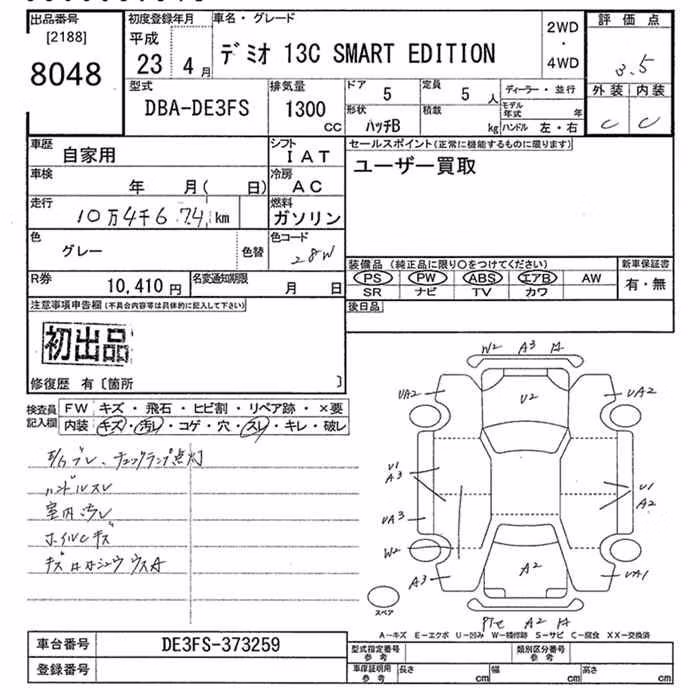 出品番号
[2188]
8048
初度登録年月
平成
23 4 月
車名・グレード
デミオ 13C SMART EDITION
2WD
・
4WD
評価点
3.5
外装 内装
C C
型式
DBA-DE3FS
排気量
1300
CC
ドア
5
定員
5 人
形状
ハッチB
積載
kg
ディーラー・並行
モデル年式 年
ハンドル 左・右
車歴
自家用
シフト
IAT
車検
年 月( 日)
冷房
AC
走行
10万4千674 km
燃料
ガソリン
色
グレー
色替
色コード
28W
R券
10,410 円
名変通知期限
月 日
セールスポイント(正常に機能するものに限ります)
ユーザー買取
装備品 (純正品に限り○をつけてください)
PS PW ABS エアB AW
SR ナビ TV カワ
新車保証書
有・無
後日品
注意事項申告欄(不具合内容等は具体的に記入して下さい)
初出品
修復歴 有〔箇所 〕
検査員
記入欄
FW キズ・飛石・ヒビ割・リペア跡・×要
内装 キズ・汚レ・コゲ・穴・スレ・キレ・破レ
チェックランプ点灯
ハンドルスレ
室内汚レ
ホイルCキズ
W2 A3
UA2 U2 UA2
U1
A3
U1
A2
UA3
W2
A3 A2 UA1
A2
スペア
A-キズ E-エクボ U-凹み W-補修跡 S-サビ C-腐食 XX-交換済
車台番号
DE3FS-373259
登録番号
型式指定番号
参考
類別区分番号
参考
車庫証明用
参考
長さ cm 幅 cm 高さ cm